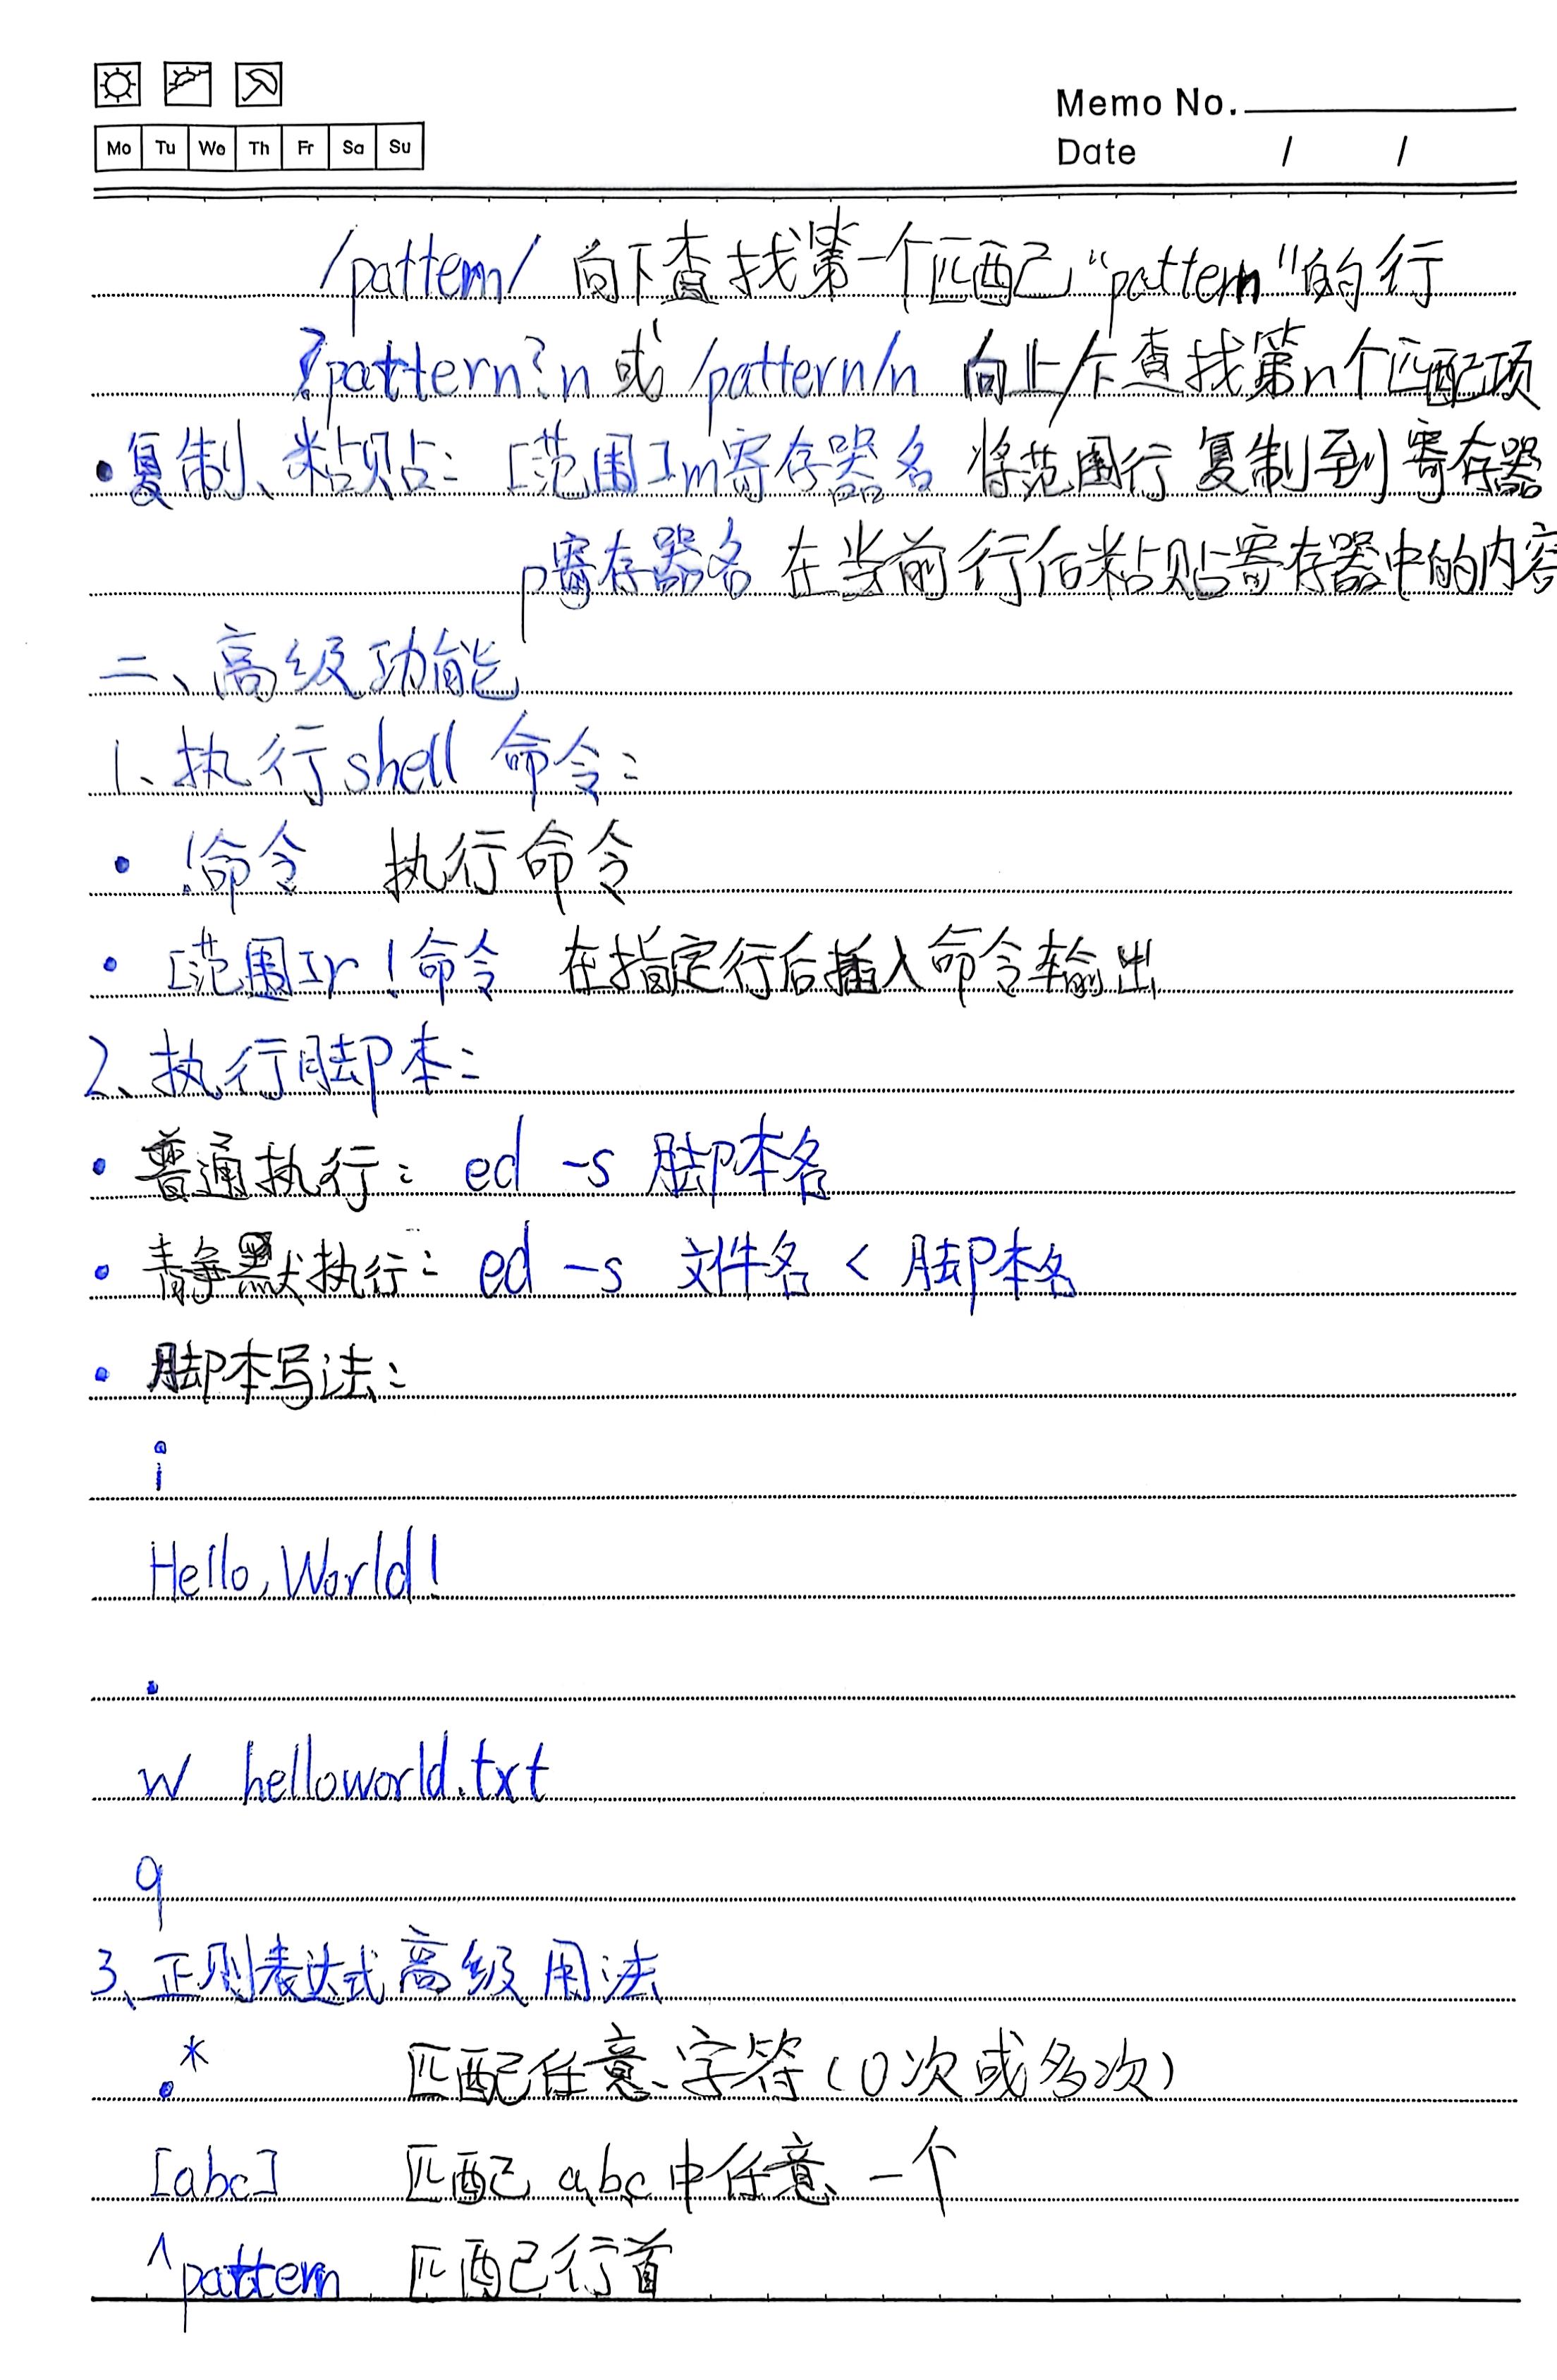 Memo No.
Mo Tu We Th Fr Sa Su
Date / /
/pattern/ 向下查找第一个匹配“pattern”的行
?pattern?n 或 /pattern/n 向上/下查找第n个匹配项
•复制、粘贴：[范围]m寄存器名 将范围行复制到寄存器
p寄存器名 在当前行后粘贴寄存器中的内容
二、高级功能
1、执行shell 命令：
• !命令 执行命令
• [范围]r !命令 在指定行后插入命令输出
2、执行脚本：
• 普通执行：ed -s 脚本名
• 静默执行：ed -s 文件名 < 脚本名
• 脚本写法：
i
Hello,World!
.
w helloworld.txt
q
3、正则表达式高级用法
.* 匹配任意字符(0次或多次)
[abc] 匹配a,b,c中任意一个
^pattern 匹配行首